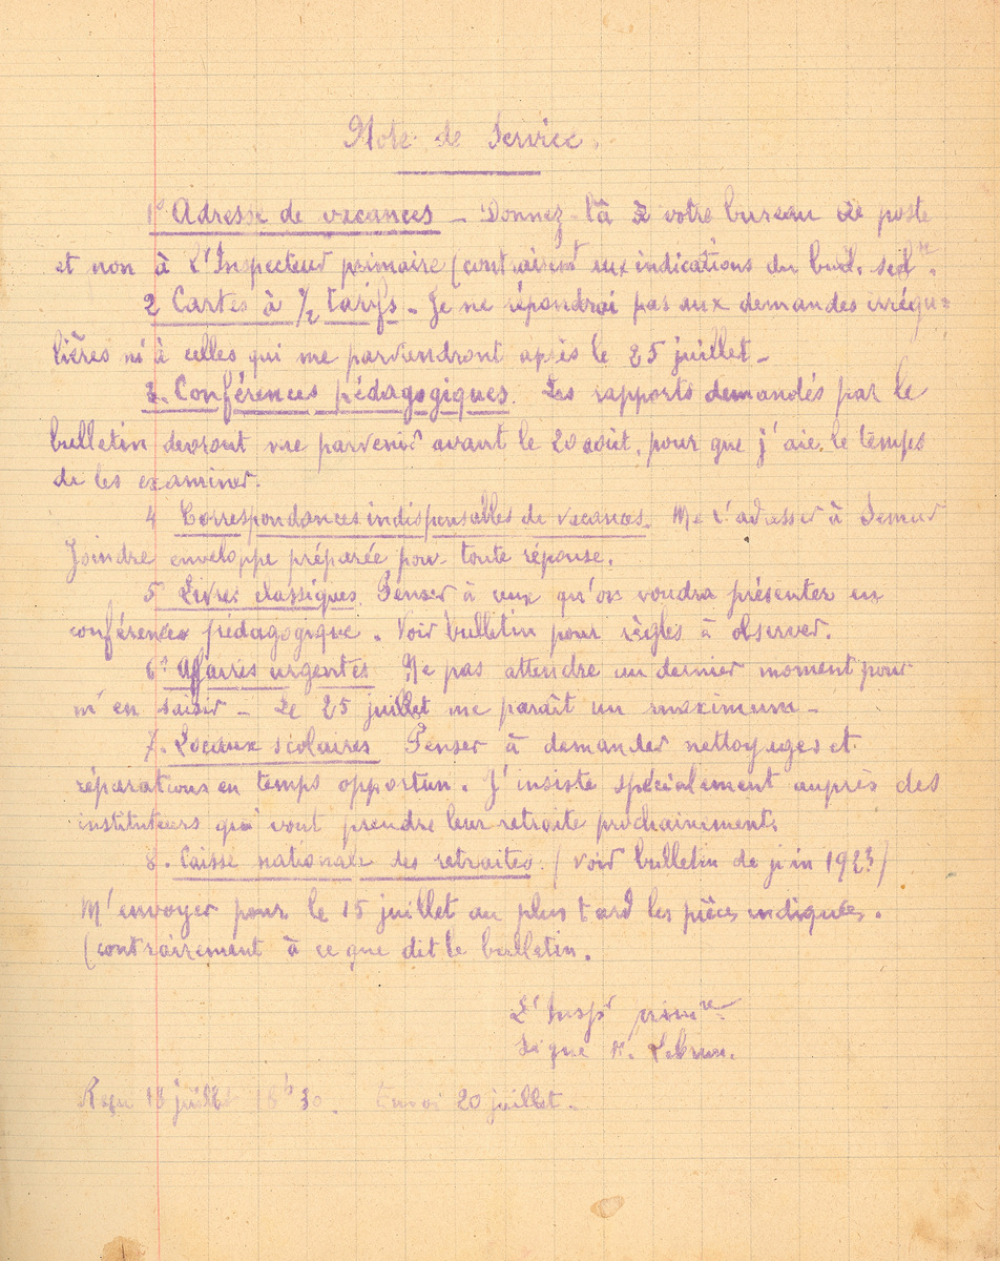 Note de Service.
1° Adresse de vacances – Donnez-la à votre bureau de poste
et non à l'Inspecteur primaire (contrairemt aux indications du bull.
2 Cartes à 1/2 tarifs. – Je ne répondrai pas aux demandes irrégu=
lières ni à celles qui me parviendront après le 25 juillet –
3. Conférences pédagogiques. Les rapports demandés par le
bulletin devront me parvenir avant le 20 août, pour que j'aie le temps
de les examiner.
4 Correspondances indispensables de vacances. Me l'adresser à Semur
Joindre enveloppe préparée pour toute réponse.
5 Livres classiques. Penser à ceux qu'on voudra présenter en
conférence pédagogique. Voir bulletin pour règles à observer.
6° Affaires urgentes Ne pas attendre au dernier moment pour
m'en saisir – Le 25 juillet me paraît un maximum –
7. Locaux scolaires Penser à demander nettoyages et
réparations en temps opportun. J'insiste spécialement auprès des
instituteurs qui vont prendre leur retraite prochainement.
8. Caisse nationale des retraites. (Voir bulletin de juin 1923)
M'envoyer pour le 15 juillet au plus tard les pièces indiquées.
(contrairement à ce que dit le bulletin.
L'Inspr primre
Signé Lebrun.
Reçu 18 juillet 30. Envoi 20 juillet –